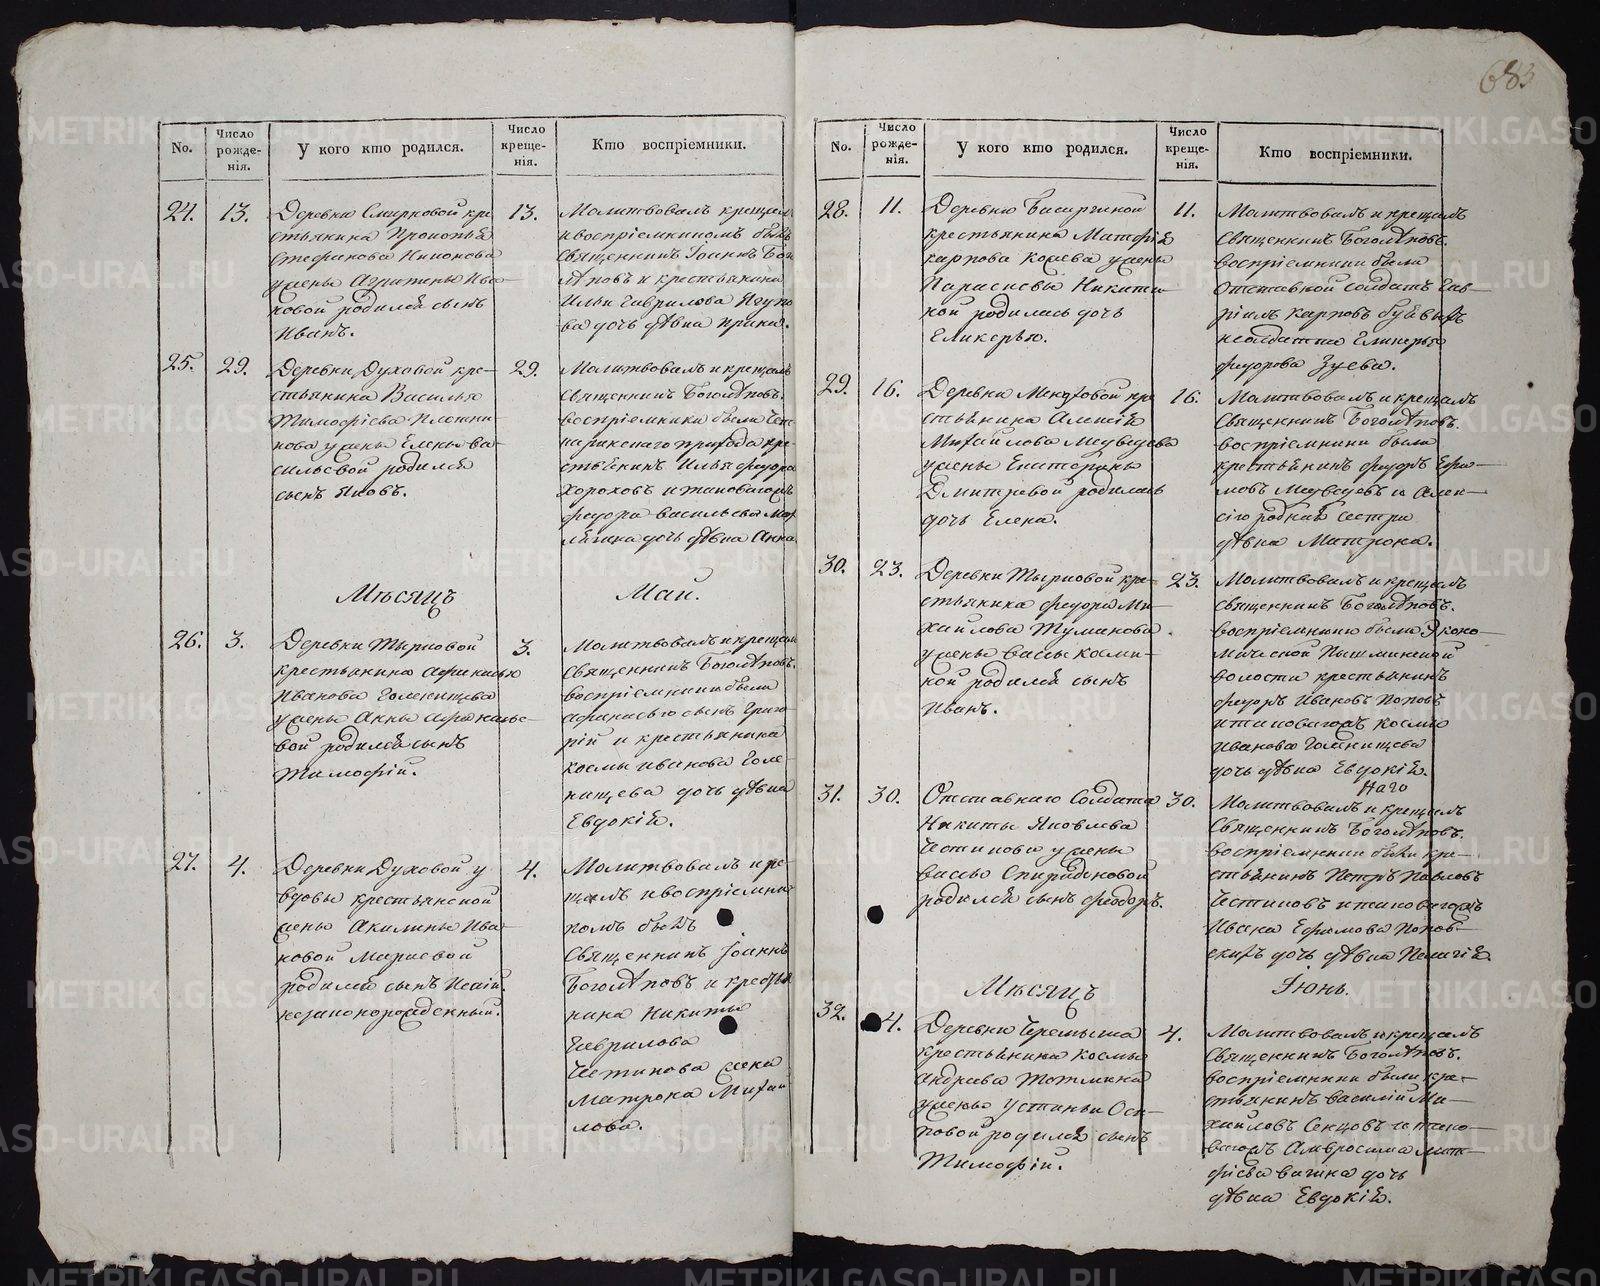 683
No.
Число рожде-нія.
У кого кто родился.
Число креще-нія.
Кто воспріемники.
24.
13.
Деревни Смирновой кре
стьянина Прокопья
Стефанова Никонова
у жены Агрипены Ива
новой родился сынъ
Иванъ.
13.
Молитвовалъ крещал
и воспріемникомъ былъ
Священникъ Іоаннъ Бого
лѣповъ и крестьянина
Ильи Гаврилова Ягупо
ва дочь дѣвка Ирина.
25.
29.
Деревни Духовой кре-
стьянина Василья
Тимофѣева Плотни
кова у жены Елены Ва
сильевой родился
сынъ Яковъ.
29.
Молитвовалъ и крещалъ
Священникъ Боголѣповъ.
воспріемники были
прихода кре
стьянинъ Илья Федоро
Хороховъ и таковагожъ
Федора Васильева
дочь дѣвка Анна
Мѣсяцъ
Май.
26.
3.
Деревни Тырковой
крестьянина Афанасья
Иванова Голенищева
у жены Анны Афанасье-
вой родился сынъ
Тимофѣй.
3.
Молитвовалъ и крещалъ
Священникъ Боголѣповъ.
воспріемники были
Афанасью сынъ Григо
рій и крестьянина
Козмы Иванова Голе
нищева дочь дѣвка
Евдокія.
27.
4.
Деревни Духовой у
вдовы крестьянской
жены Акилины Ива
новой Маріевой
родился сынъ Исаій.
незаконорожденный.
4.
Молитвовалъ и кре
щалъ и воспріемни
комъ былъ
Священникъ Іоаннъ
Боголѣповъ и крестья
нина Никиты
Гаврилова
Честикова жена
Матрона Михай
лова.
No.
Число рожде-нія.
У кого кто родился.
Число креще-нія.
Кто воспріемники.
28.
11.
Деревни
крестьянина Матфѣя
Карпова Козева у жены
Параскевы Никити-
ной родилась дочь
Гликерья.
11.
Молитвовалъ и крещалъ
Священникъ Боголѣповъ.
воспріемники были
Отставной солдатъ Гав-
ріилъ Карповъ
и солдатка Гликерья
Федорова Зуева.
29.
16.
Деревни кре
стьянина Алексѣя
Михайлова Медведева
у жены Екатерины
Дмитревой родилась
дочь Елена.
16.
Молитвовалъ и крещалъ
Священникъ Боголѣповъ.
воспріемники были
крестьянинъ Федоръ Ефи-
мовъ Медведевъ и Алек-
сѣю родная сестра
дѣвка Матрона.
30.
23.
Деревни Тырковой кре-
стьянина Федора Ми-
хайлова Туманова
у жены Вассы Козми-
ной родился сынъ
Иванъ.
23.
Молитвовалъ и крещалъ
Священникъ Боголѣповъ.
воспріемники были Эконо-
мической Пышминской
волости крестьянинъ
Федоръ Ивановъ Поповъ
и таковагожъ Козмы
Иванова Голенищева
дочь дѣвка Евдокія.
31.
30.
Отставнаго Солдата
Никиты Яковлева
Честикова у жены
Вассы Спиридоновой
родился сынъ Феодоръ.
30.
Молитвовалъ и крещалъ
Священникъ Боголѣповъ.
воспріемники были кре-
стьянинъ Петръ Павловъ
Честиковъ и таковагожъ
Ивана Ефимова Попов-
скихъ дочь дѣвка Пелагія.
Мѣсяцъ
Іюнь.
32.
4.
Деревни Черемыша
крестьянина Козмы
Андреева Тотмина
у жены Устиньи Оси-
повой родился сынъ
Тимофѣй.
4.
Молитвовалъ и крещалъ
Священникъ Боголѣповъ.
воспріемники были кре-
стьянинъ Василій Ми-
хайловъ Секцовъ и тако-
вагожъ Амвросима Мат-
фѣева дочь
дѣвка Евдокія.
METRIKI.GASO-URAL.RU